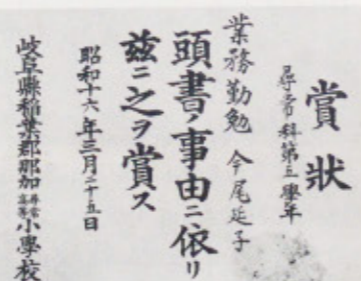 賞狀
尋常科第五學年
業務勤勉 今尾延子
頭書ノ事由ニ依リ
茲ニ之ヲ賞ス
昭和十六年三月二十五日
岐阜縣稻葉郡那加尋常高等小學校